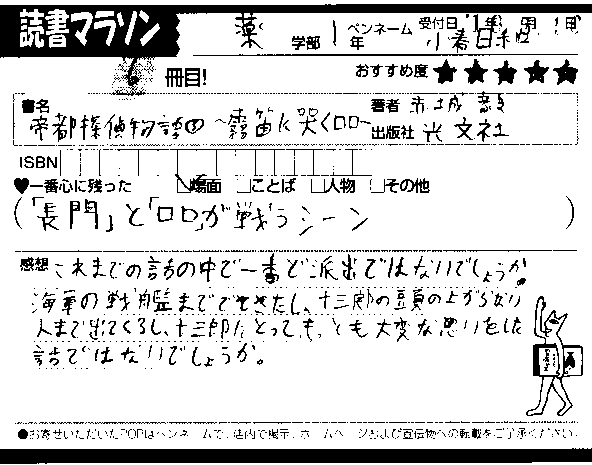 読書マラソン
薬 学部 1 年 ペンネーム 小春日和 受付日 1年 月 日
冊目! おすすめ度 ★★★★★
書名 帝都探偵物語 ~霧笛に哭く 著者 赤城 毅
出版社 光文社
ISBN
♥一番心に残った 場面 ことば 人物 その他
(「長門」と「ロロ」が戦うシーン)
感想 これまでの話の中で一番ど派出ではないでしょうか。
海軍の戦艦まででてきたし、十三郎の頭の上がらない
人まで出てくるし、十三郎にとっても、とも大変な思いをした
話ではないでしょうか。
●お寄せいただいたPOPはペンネームで、店内で掲示、ホームページおよび宣伝物への転載をご了承ください。